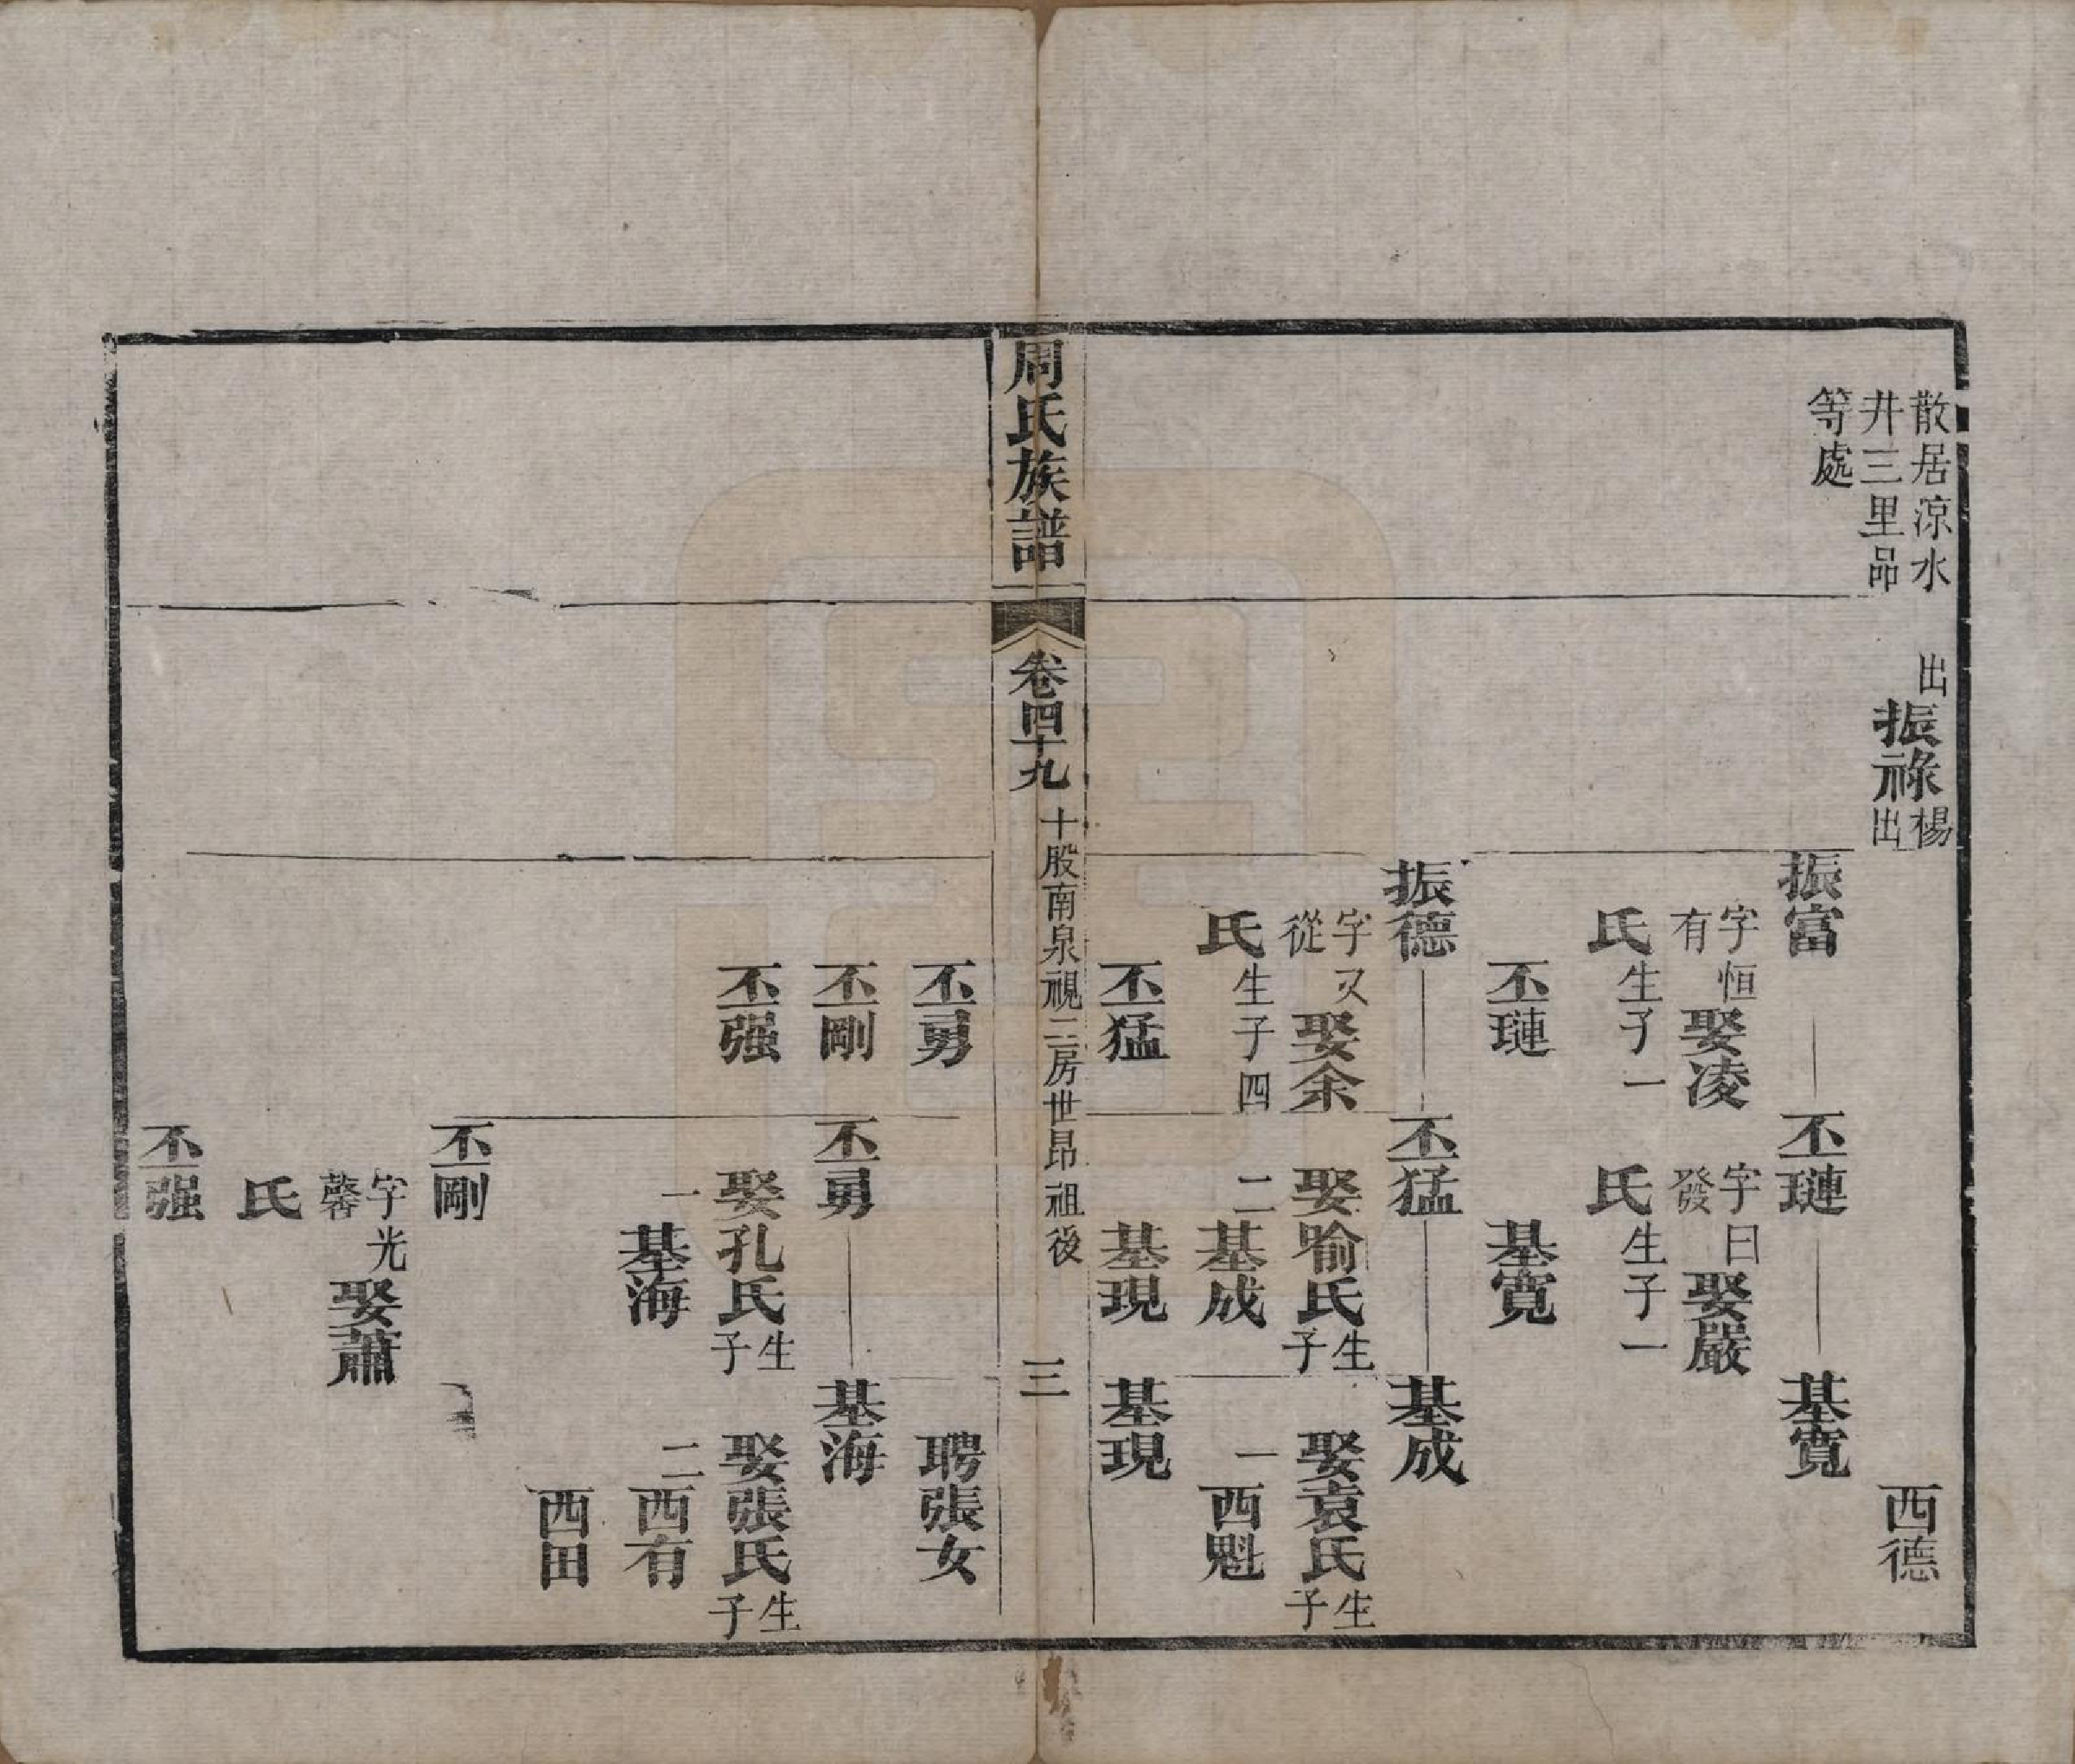 散居涼水
井三里品
等處
出
振祿
楊
出
西德
振富
字恒
有
娶凌
氏
生子一
丕璉
丕璉
字曰
發
娶嚴
氏
生子一
基寬
基寬
振德
字又
從
娶余
氏
生子四
丕猛
丕勇
丕剛
丕强
丕猛
娶喻氏
生
子
二
基成
基現
基成
娶袁氏
生
子
一
西魁
基現
聘張女
周氏族譜
卷四十九
十股南泉視三房世昂祖後
三
丕勇
娶孔氏
生
子
一
基海
基海
娶張氏
生
子
二
西有
西田
丕剛
字光
馨
娶蕭
氏
丕强